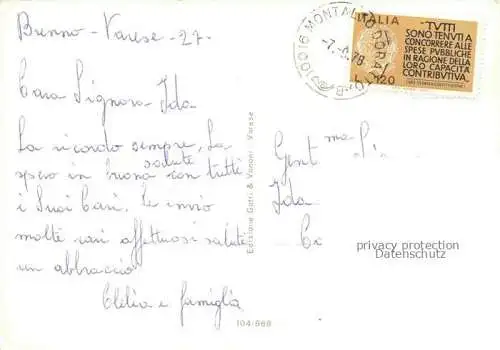 Brenno - Varese - 27 -
Cara Signora Ida
La ricordo sempre, La
spero in buona salute con tutti
i Suoi Cari. Le invio
molti cari affettuosi saluti
un abbraccio
Clelia e famiglia
Edizione Gatti & Vanoni - Varese
104/868
10016 MONTALTO DORA
ITALIA
TUTTI
SONO TENUTI A
CONCORRERE ALLE
SPESE PUBBLICHE
IN RAGIONE DELLA
LORO CAPACITÀ
CONTRIBUTIVA
L. 120
Gent.ma
Ida
privacy protection
Datenschutz